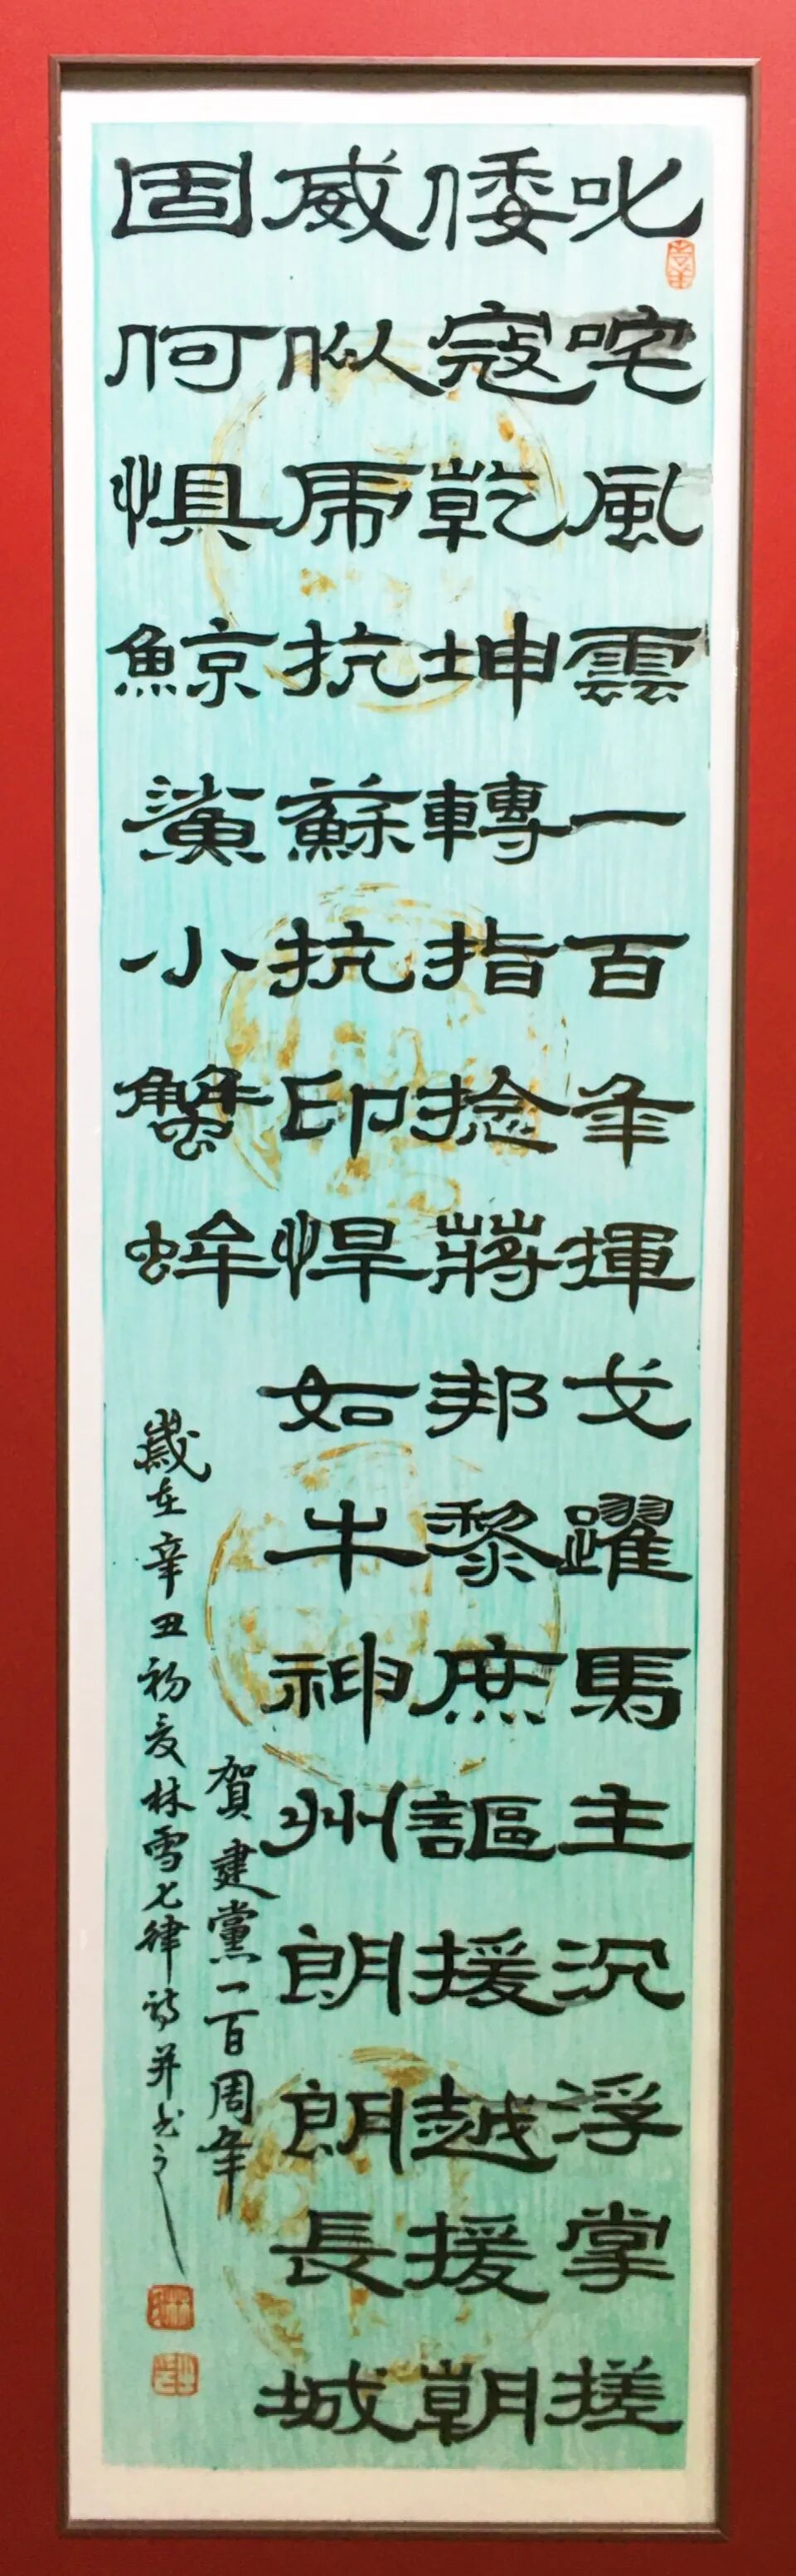 叱咤風雲一百年揮戈躍馬主沉浮掌搓
倭寇乾坤轉指捻蔣邦黎庶謳援越援朝
威似虎抗蘇抗印悍如牛神州朗朗長城
固何懼鯨鯊小蟹蛑
賀建黨一百周年
歲在辛丑初夏林雪七律詩并书之